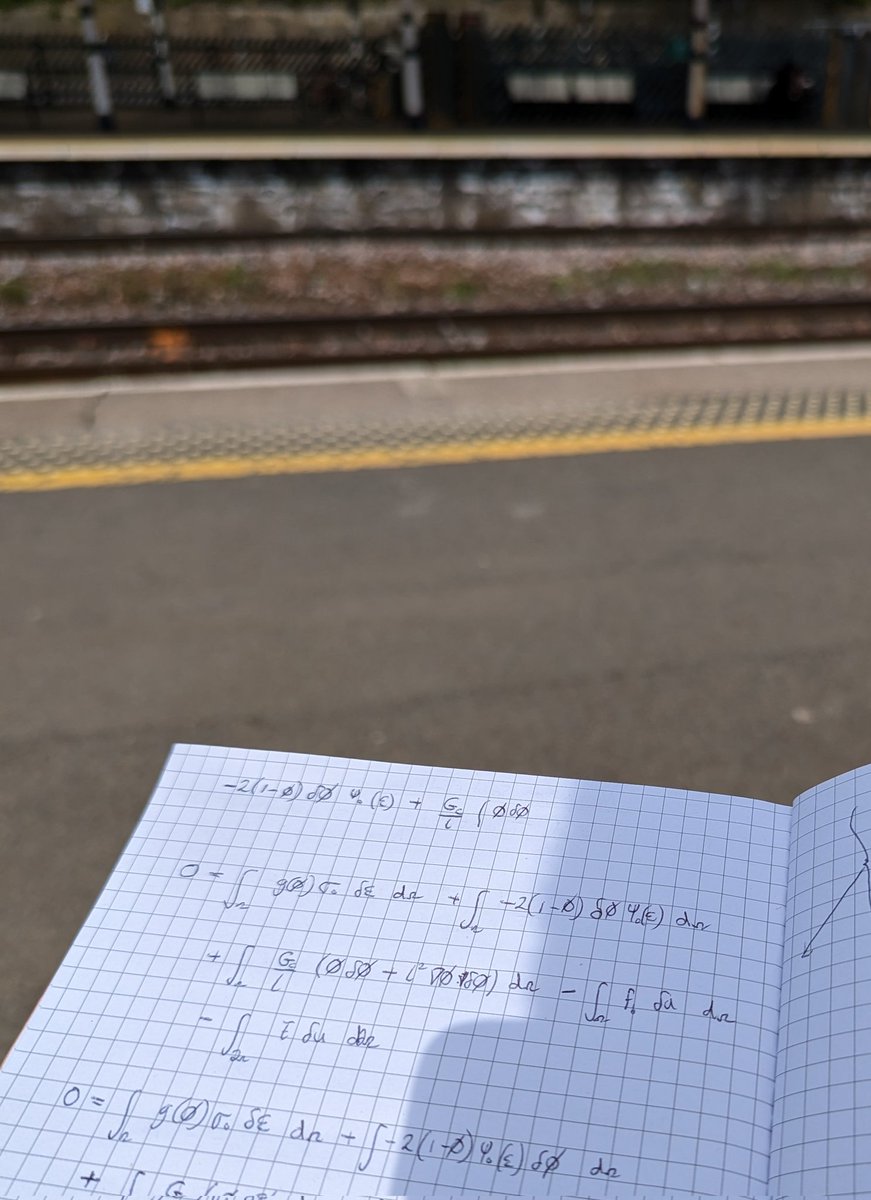 -2(1-ϕ) δϕ ψ₀(ε) + G_c/l ∫ ϕ δϕ
0 = ∫_Ω g(ϕ) σ₀ δε dΩ + ∫_Ω -2(1-ϕ) δϕ ψ₀(ε) dΩ
+ ∫_Ω G_c/l (ϕ δϕ + l² ∇ϕ ∇δϕ) dΩ - ∫_Ω δu dΩ
- ∫_∂Ω δu
0 = ∫_Ω g(ϕ) σ₀ δε dΩ + ∫ -2(1-ϕ) ψ₀(ε) δϕ dΩ
+ ∫ G